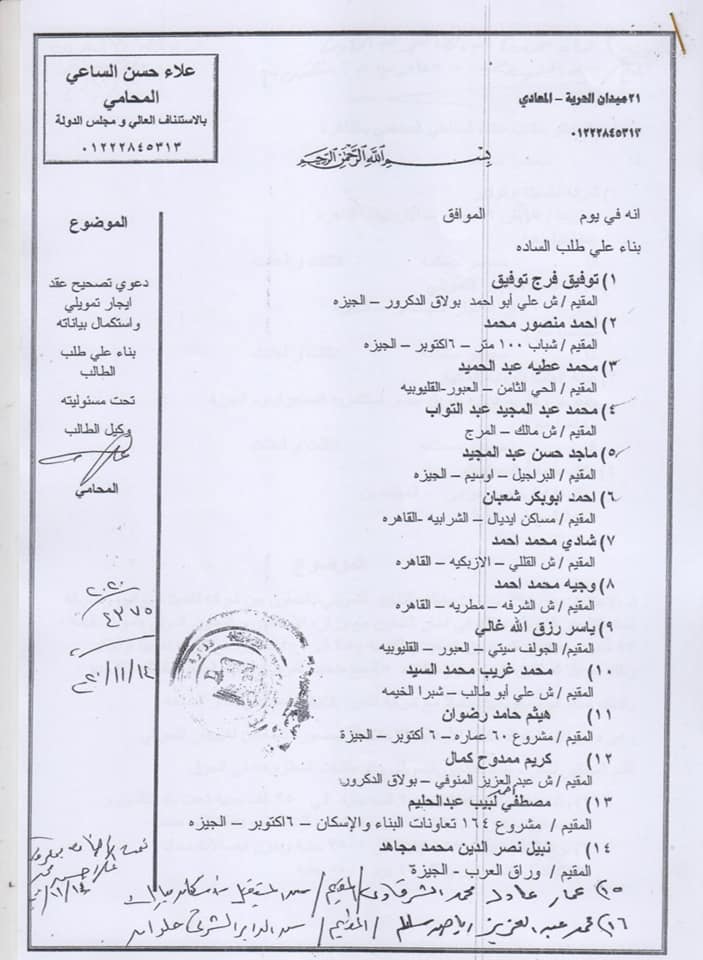 علاء حسن الساعي
المحامي
بالاستئناف العالي و مجلس الدولة
٠١٢٢٢٨٤٥٣١٣
٢١ ميدان الحرية – المعادي
٠١٢٢٢٨٤٥٣١٣
بسم الله الرحمن الرحيم
انه في يوم الموافق
بناء علي طلب الساده
١) توفيق فرج توفيق
المقيم / ش علي أبو احمد بولاق الدكرور – الجيزه
٢) احمد منصور محمد
المقيم / شباب ١٠٠ متر – ٦اكتوبر – الجيزه
٣) محمد عطيه عبد الحميد
المقيم / الحي الثامن – العبور-القليوبيه
٤) محمد عبد المجيد عبد التواب
المقيم / ش مالك – المرج
٥) ماجد حسن عبد المجيد
المقيم / البراجيل – اوسيم – الجيزه
٦) احمد ابوبكر شعبان
المقيم / مساكن ايديال – الشرابيه -القاهره
٧) شادي محمد احمد
المقيم / ش القللي – الازبكيه – القاهره
٨) وجيه محمد احمد
المقيم / ش الشرفه – مطريه – القاهره
٩) ياسر رزق الله غالي
المقيم / الجولف سيتي – العبور – القليوبيه
١٠) محمد غريب محمد السيد
المقيم / ش علي أبو طالب – شبرا الخيمه
١١) هيثم حامد رضوان
المقيم / مشروع ٦٠ عماره – ٦ أكتوبر – الجيزة
١٢) كريم ممدوح كمال
المقيم / ش عبد العزيز المنوفي – بولاق الدكرور
١٣) مصطفي أحمد لبيب عبدالحليم
المقيم / مشروع ١٦٤ تعاونات البناء والإسكان – ٦اكتوبر – الجيزه
١٤) نبيل نصر الدين محمد مجاهد
المقيم / وراق العرب - الجيزة
١٥) عمار عادل محمد الشرقاوي / المقيم /
١٦) محمد عبد العزيز / المقيم / حلوان
الموضوع
دعوي تصحيح عقد
ايجار تمويلي
واستكمال بياناته
بناء علي طلب
الطالب
تحت مسئوليته
وكيل الطالب
المحامي
٢٠٢٠
٤٣٧٥